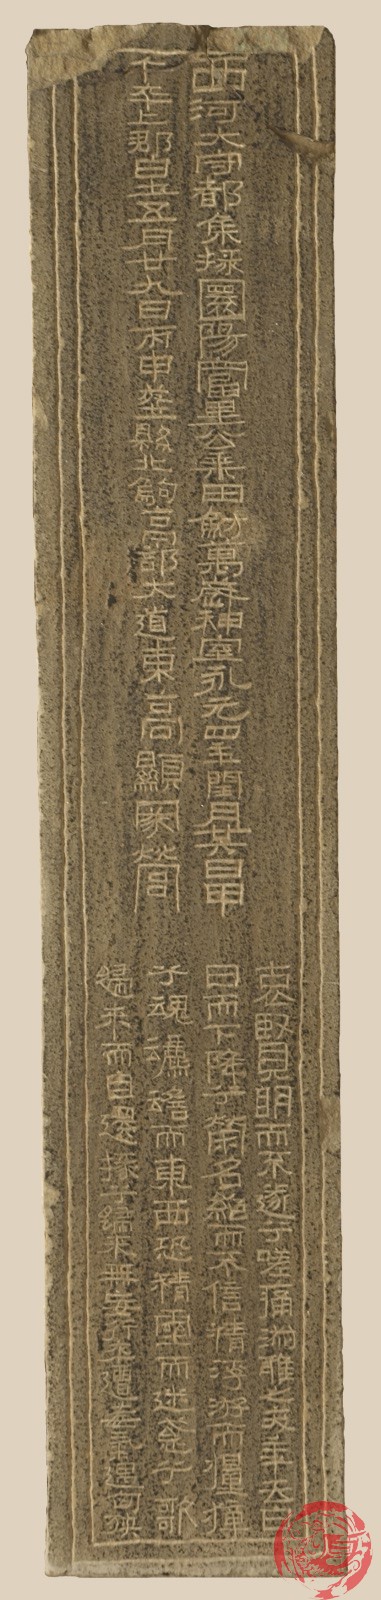 西河大守都集掾圜陽當里公乘田魴萬歲神室永元四年閏月其日甲
午卒上郡白土五月廿九日丙申葬縣北駒亭部大道東高顯冢營
哀賢明而不遂兮嗟痛淑雅之夭年去白
日而下降兮榮名絕而不信精浮游而
兮魂飄而東西恐精靈而迷惑兮歌
歸來而自還掾兮歸來無妄行卒遭毒氣遇凶殃